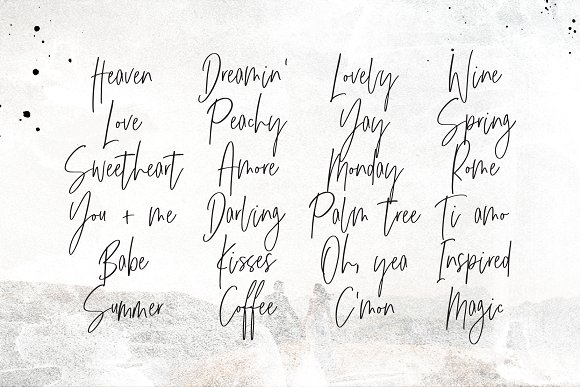 Heaven Dreamin' Lovely Wine
Love Peachy Yay Spring
Sweetheart Amore Monday Rome
You + me Darling Palm tree Ti amo
Babe Kisses Oh, yea Inspired
Summer Coffee C'mon Magic